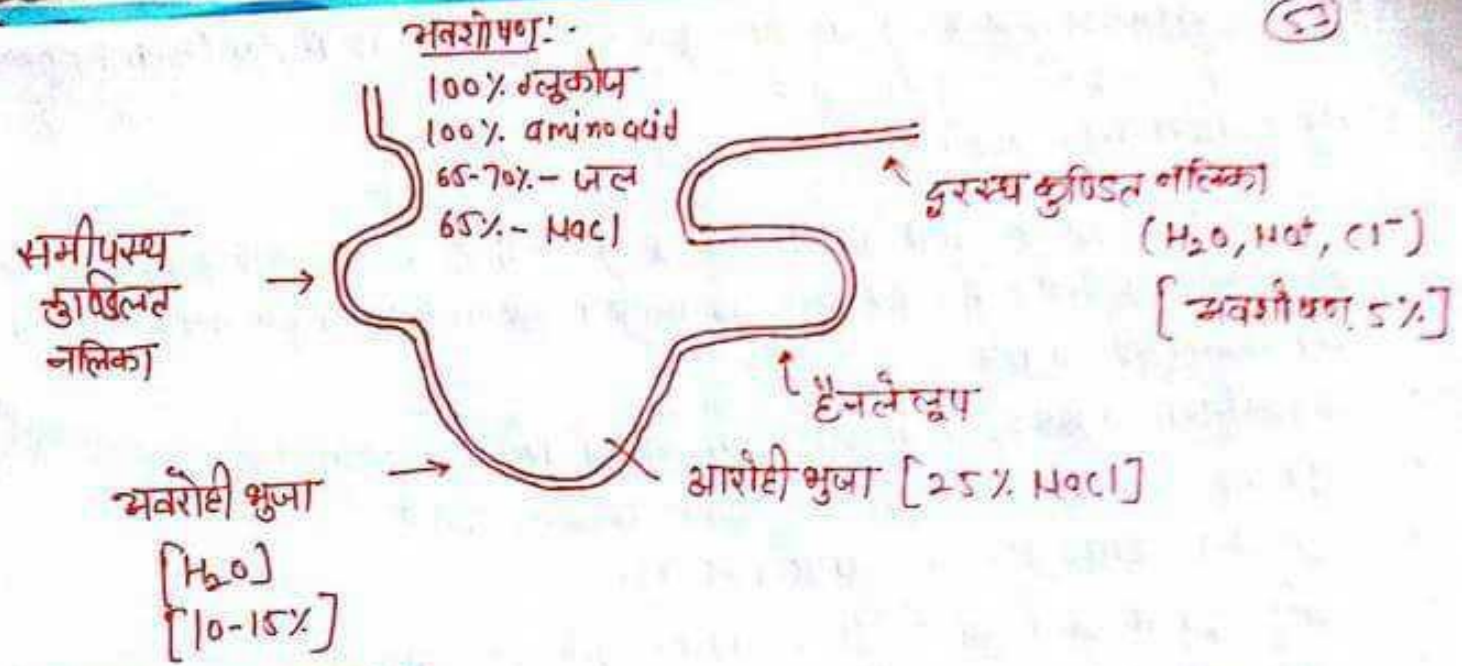 53
अवशोषण:-
100% ग्लूकोज
100% amino acid
65-70% - जल
65% - NaCl
समीपस्थ
कुण्डलित
नलिका
दुरस्थ कुण्डित नलिका
(H₂O, Na⁺, Cl⁻)
[अवशोषण 5%]
हैनले लूप
आरोही भुजा [25% NaCl]
अवरोही भुजा
[H₂O]
[10-15%]